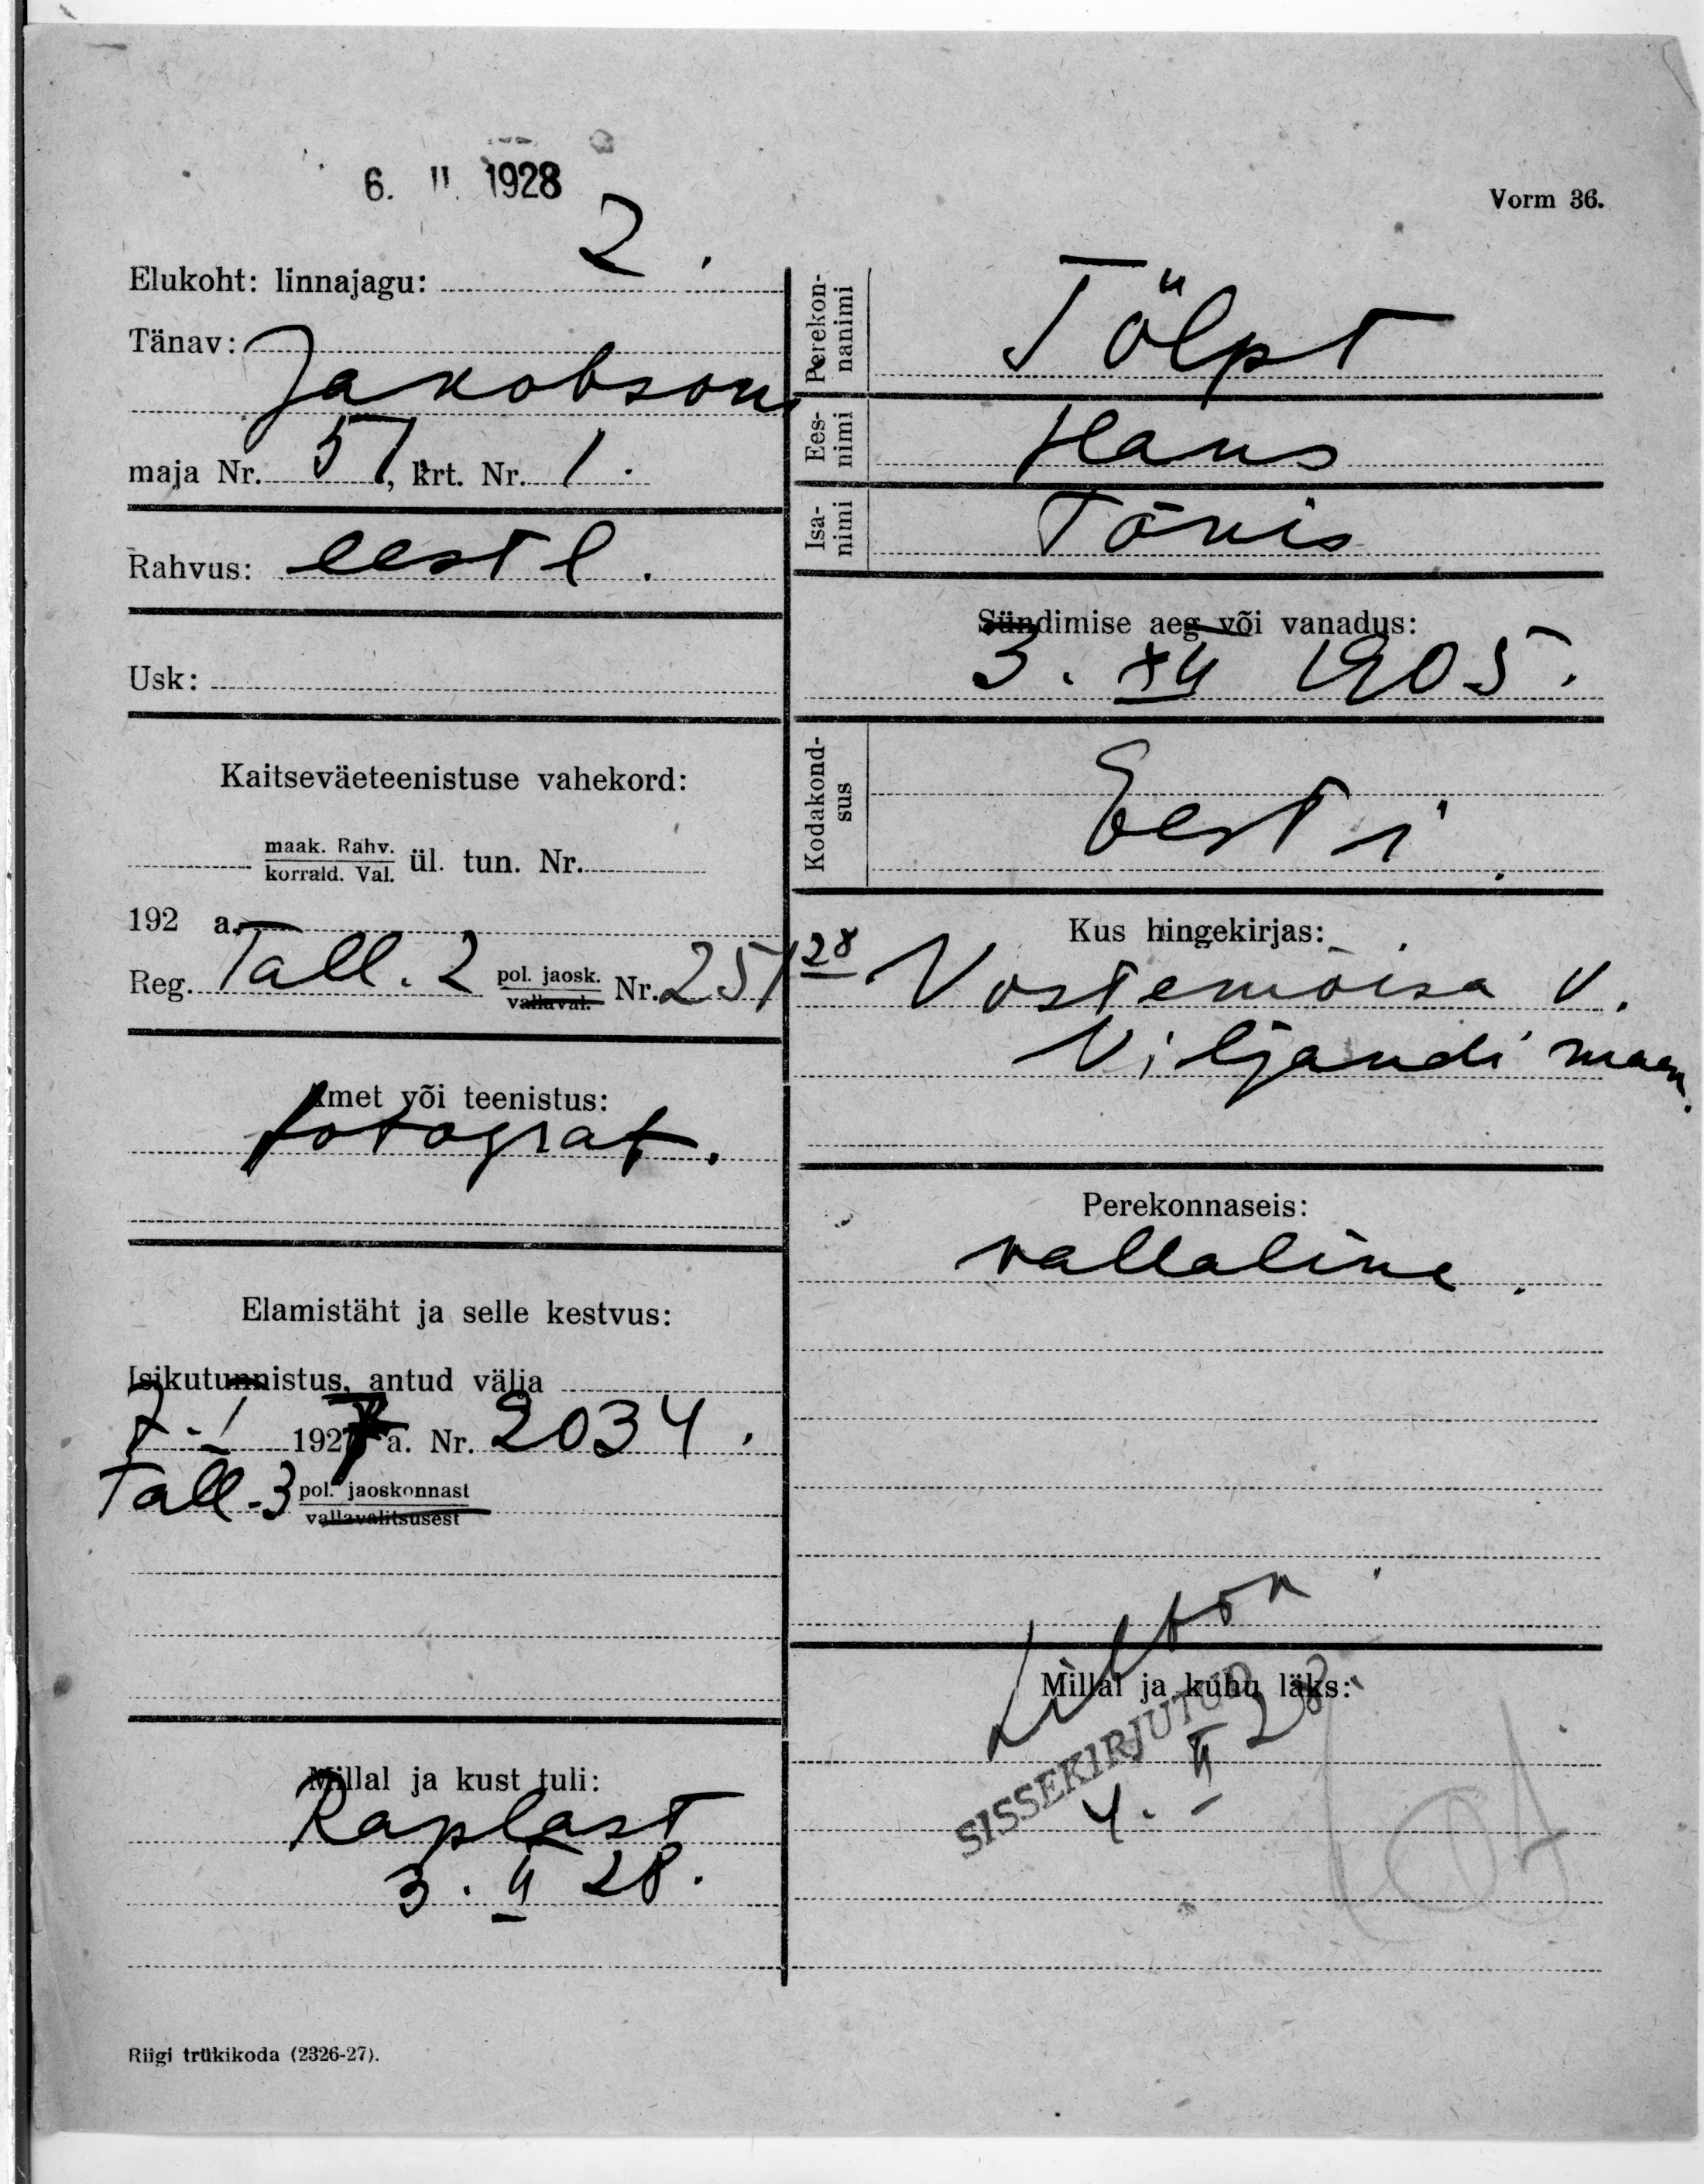 6. II 1928
Vorm 36.
Elukoht: linnajagu: 2.
Tänav: Jakobson
maja Nr. 51, krt. Nr. 1.
Rahvus: eestl.
Usk:
Kaitseväeteenistuse vahekord:
maak. Rahv.
korrald. Val. ül. tun. Nr.
192 a.
Reg. Tall. 2 pol. jaosk. Nr. 251 28
vallaval.
Amet või teenistus:
fotograf.
Elamistäht ja selle kestvus:
Isikutunnistus, antud välja
7. I 1927 a. Nr. 2034.
Tall. 3 pol. jaoskonnast
vallavalitsusest
Millal ja kust tuli:
Raplast
3. II 28.
Riigi trükikoda (2326-27).
Perekonnanimi Tölpt
Eesnimi Hans
Isanimi Tõnis
Sündimise aeg või vanadus:
3. XII 1905.
Kodakondsus Eesti.
Kus hingekirjas:
Vostemõisa v.
Viljandi maa
Perekonnaseis:
vallaline.
Millal ja kuhu läks:
SISSEKIRJUTUD
4. II 28